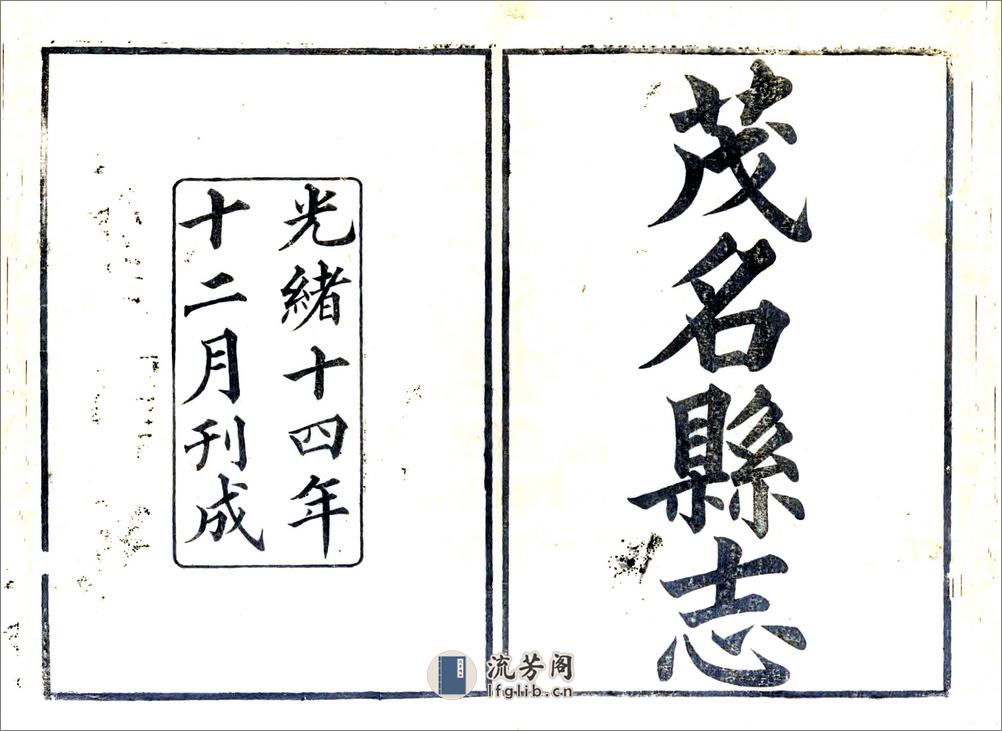 茂名縣志
光緒十四年
十二月刊成
流芳阁
lfglib.cn